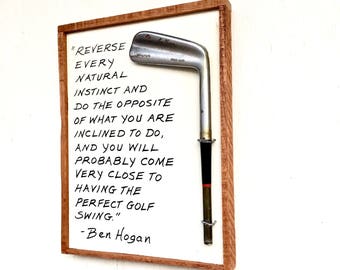 "REVERSE
EVERY
NATURAL
INSTINCT AND
DO THE OPPOSITE
OF WHAT YOU ARE
INCLINED TO DO,
AND YOU WILL
PROBABLY COME
VERY CLOSE TO
HAVING THE
PERFECT GOLF
SWING."
-Ben Hogan